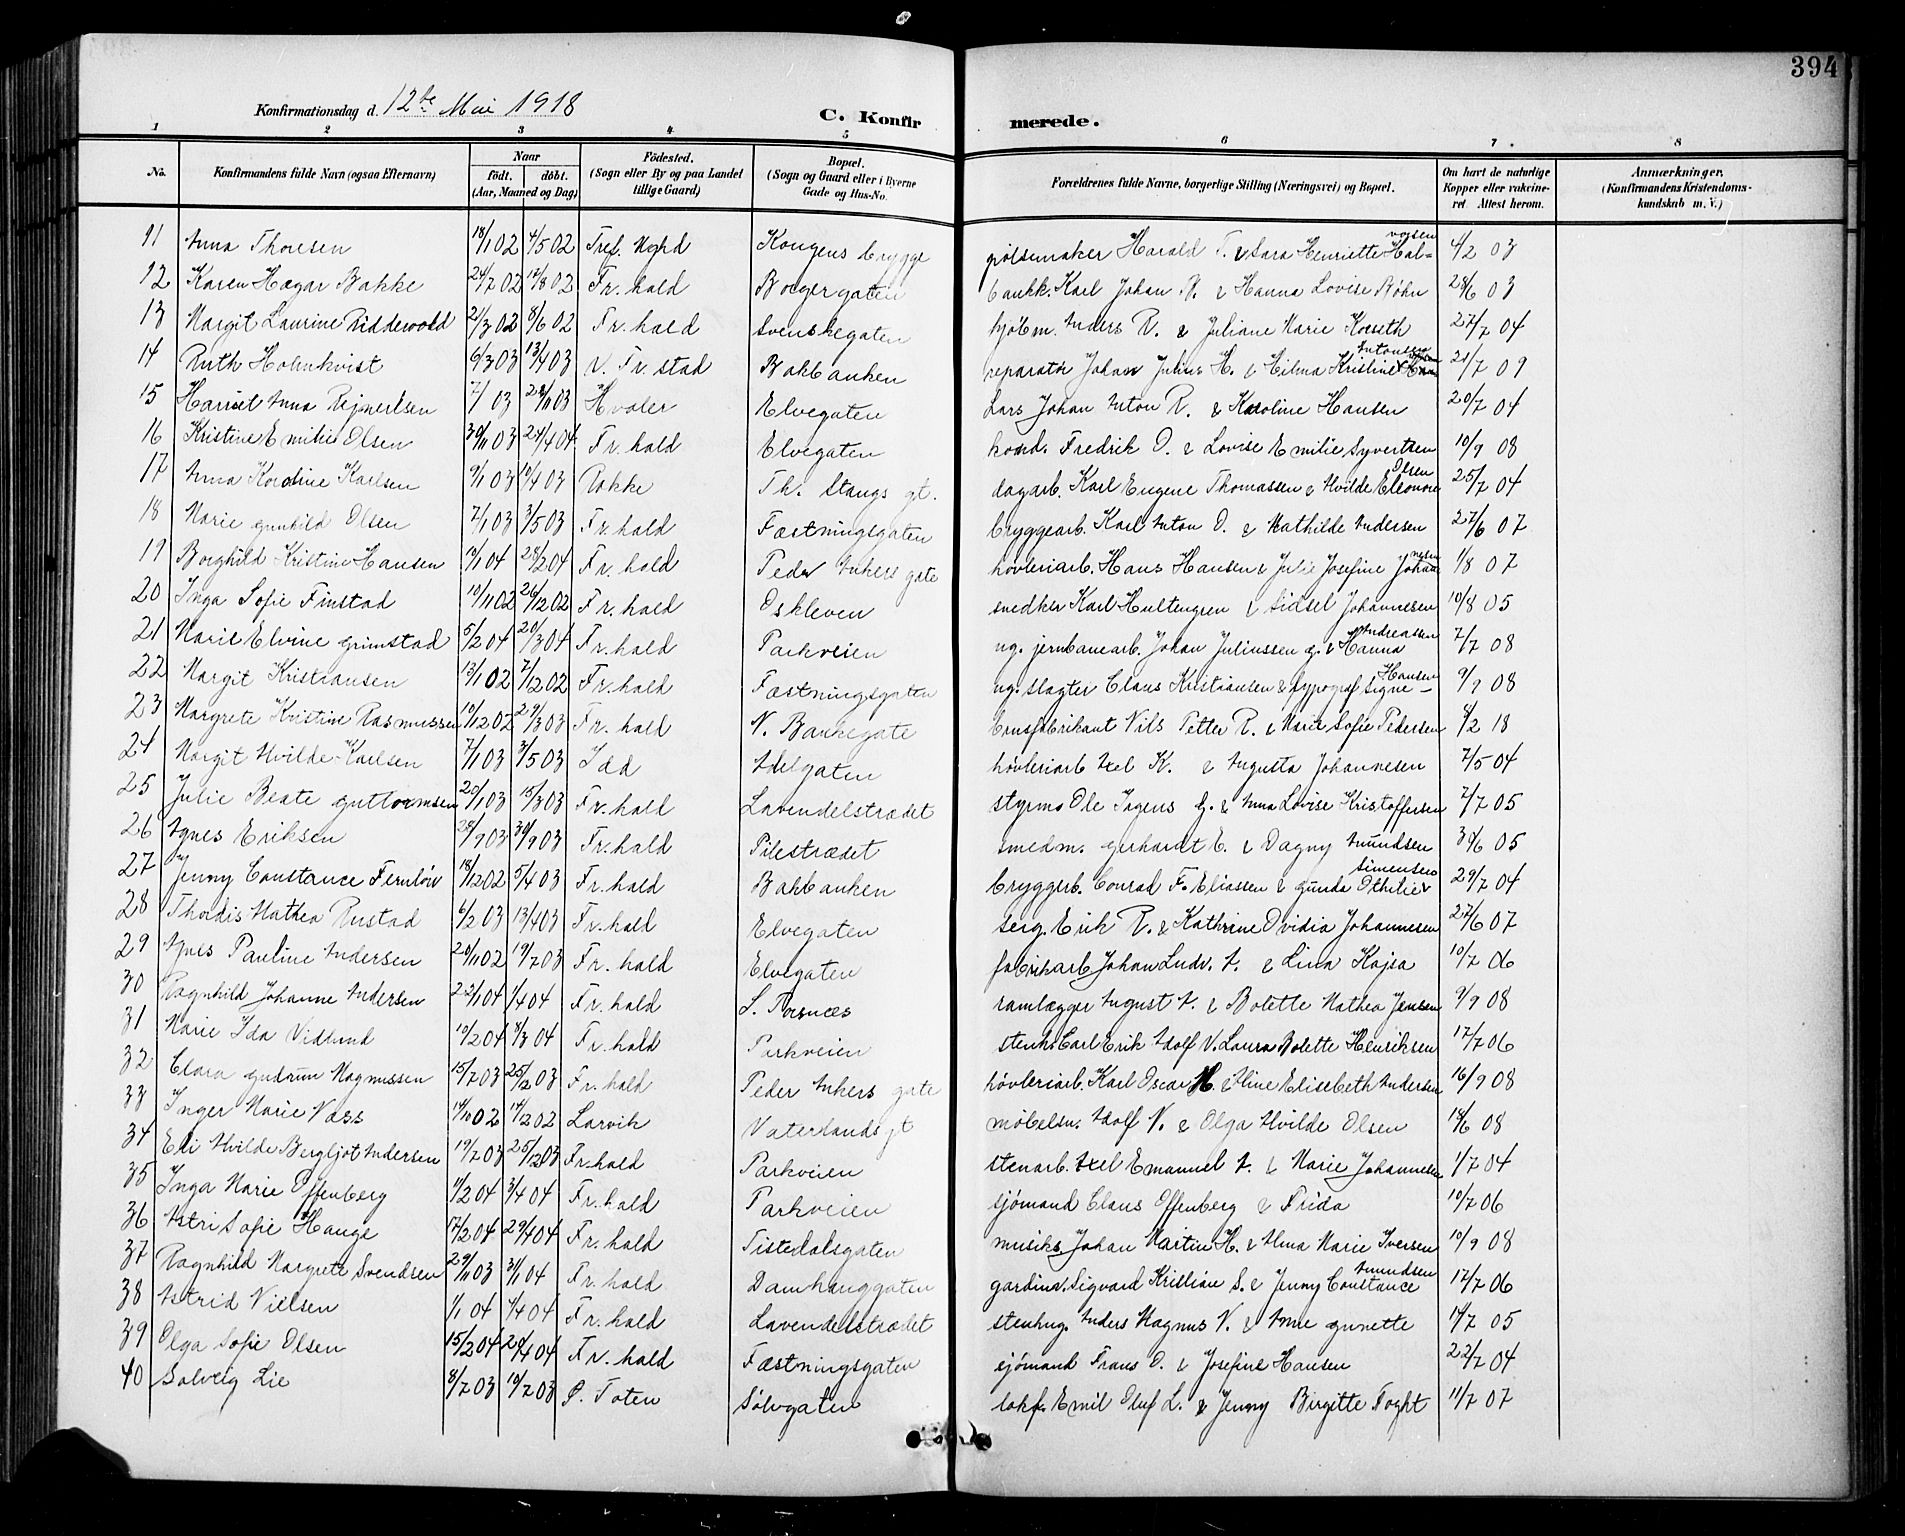 394
Konfirmationsdag d. 12te Mai 1918 C. Konfirmerede.
1 2 3 4 5 6 7 8
No. Konfirmandens fulde Navn (ogsaa Efternavn) Naar födt. döbt. (Aar, Maaned og Dag) Födested. (Sogn eller By og paa Landet tillige Gaard) Bopæl. (Sogn og Gaard eller i Byerne Gade og Hus-No. Forældrenes fulde Navne, borgerlige Stilling (Næringsvei) og Bopæl. Om havt de naturlige Kopper eller vakcineret. Attest herom. Anmærkninger, (Konfirmandens Kristendomskundskab m. V.)
11 Anna Thoresen 18/1 02 4/5 02 Tref. Mghd Kongens brygge pölsemaker Harald T. & Sara Henriette Halvorsen 4/2 03
12 Karen Hagar Bakke 24/7 02 17/8 02 Fr. hald Borgergaten bankk. Karl Johan B. & Hanna Lovise Böhn 28/6 03
13 Margit Laurine Riddervold 21/3 02 8/6 02 Fr. hald Svenskegaten kjöbm. Anders R. & Juliane Marie Kosseth 27/7 04
14 Ruth Holmkvist 6/3 03 13/4 03 V. Fr. stad Bakbanken reparatör Johan Julius H. & Hilma Kristine Antonsen 21/7 09
15 Harriet Anna Rejnertsen 7/ 03 28/11 03 Hvaler Elvegaten Lars Johan Anton R. & Karoline Hansen 20/7 04
16 Kristine Emilie Olsen 30/11 03 24/4 04 Fr. hald Elvegaten kond. Fredrik O. & Lovise Emilie Syvertsen 10/9 08
17 Anna Karoline Karlsen 9/1 03 10/4 03 Rokke Th. Stangs gt. dagarb. Karl Eugene Thomassen & Hvilde Eleonore Olsen 25/7 04
18 Marie Gunhild Olsen 7/1 03 3/5 03 Fr. hald Fæstningsgaten bryggearb. Karl Anton O. & Mathilde Andersen 27/6 07
19 Borghild Kristine Hansen 10/1 04 28/2 04 Fr. hald Peder Ankers gate høvleriarb. Hans Hansen & Julie Josefine Johannesen 1/8 07
20 Inga Sofie Finstad 10/11 02 26/12 02 Fr. hald Oskleven snedker Karl Hultengren & Sidsel Johannesen 10/8 05
21 Marie Elvine Grimstad 5/2 04 20/3 04 Fr. hald Parkveien ug. jernbanearb. Johan Juliussen G. & Hanna Andreassen 7/7 08
22 Margit Kristiansen 13/1 02 7/12 02 Fr. hald Fæstningsgaten ug. slagter Claus Kristiansen & typograf Signe Hansen 9/9 08
23 Margrete Kristine Rasmussen 10/12 02 29/3 03 Fr. hald N. Bankegate brusfabrikant Nils Petter R. & Marie Sofie Pedersen 8/2 18
24 Margit Hvilde Karlsen 7/1 03 3/5 03 Idd Adelgaten høvleriarb Axel K. & Augusta Johannesen 7/5 04
25 Julie Beate Guttormsen 20/1 03 15/3 03 Fr. hald Lavendelstrædet styrm. Ole Jagens G. & Anna Lovise Kristoffersen 7/7 05
26 Agnes Eriksen 28/9 03 30/9 03 Fr. hald Pilestrædet smedm. Gerhardt E. & Dagny Amundsen 30/6 05
27 Jenny Constance Fernlöv 18/12 02 5/4 03 Fr. hald Bakbanken bryggerb. Conrad F. Eliassen & Gunda Othilie Simensen 29/7 04
28 Thordis Mathea Rustad 6/2 03 13/4 03 Fr. hald Elvegaten serg. Erik R. & Kathrine Ovidia Johannesen 27/6 07
29 Agnes Pauline Andersen 20/11 02 19/7 03 Fr. hald Elvegaten fabrikarb. Johan Ludv. A. & Lina Kajsa 10/7 06
30 Ragnhild Johanne Andersen 22/1 04 1/4 04 Fr. hald L. Porsnes ramlægger August A. & Bolette Mathea Jensen 9/9 08
31 Marie Ida Vidlund 10/2 04 8/3 04 Fr. hald Parkveien stenh. Carl Erik Adolf V. Laura Bolette Henriksen 17/7 06
32 Clara Gudrun Magnussen 15/7 03 25/12 03 Fr. hald Peder Ankers gate høvleriarb. Karl Oscar M. & Aline Elisebeth Andersen 16/9 08
33 Inger Marie Næss 14/10 02 14/12 02 Larvik Vaterlandsgt möbelsn. Adolf N. & Olga Hvilde Olsen 18/6 08
34 Eli Hvilde Bergljot Andersen 19/7 03 25/12 03 Fr. hald Parkveien stenarb. Axel Emanuel A. & Marie Johannesen 1/7 04
35 Inga Marie Offenberg 11/2 04 3/4 04 Fr. hald Parkveien sjömand Claus Offenberg & Frida 10/7 06
36 Astri Sofie Hauge 17/2 04 29/4 04 Fr. hald Tistedalsgaten musiks. Johan Martin H. & Alma Marie Iversen 10/9 08
37 Ragnhild Margrete Svendsen 29/11 03 31/1 04 Fr. hald Damhauggaten gardind. Sigvard Kristian S. & Jenny Constance Amundsen 17/7 06
38 Astrid Nielsen 1/1 04 4/4 04 Fr. hald Lavendelstrædet stenhug. Anders Magnus N. & Anne Gunette 14/7 05
39 Olga Sofie Olsen 15/2 04 20/4 04 Fr. hald Fæstningsgaten sjömand Frans O. & Josefine Hansen 22/7 04
40 Solveig Lie 8/7 03 19/7 03 Ö. Toten Sölvgaten lokf. Emil Oluf L. & Jenny Birgitte Foght 11/7 07